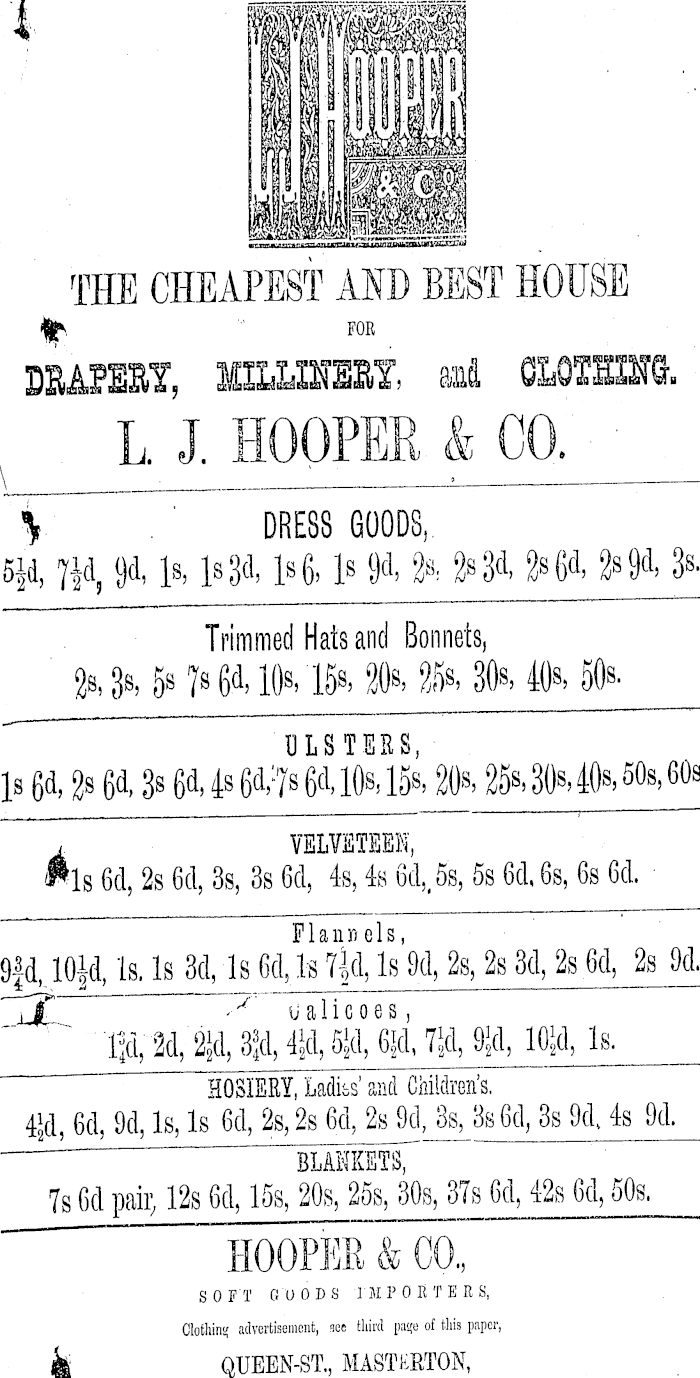 L J HOOPER
& Co
THE CHEAPEST AND BEST HOUSE
FOR
DRAPERY, MILLINERY, and CLOTHING.
L. J. HOOPER & CO.
DRESS GOODS,
5½d, 7½d, 9d, 1s, 1s 3d, 1s 6, 1s 9d, 2s, 2s 3d, 2s 6d, 2s 9d, 3s.
Trimmed Hats and Bonnets,
2s, 3s, 5s 7s 6d, 10s, 15s, 20s, 25s, 30s, 40s, 50s.
ULSTERS,
1s 6d, 2s 6d, 3s 6d, 4s 6d, 7s 6d, 10s, 15s, 20s, 25s, 30s, 40s, 50s, 60s
VELVETEEN,
1s 6d, 2s 6d, 3s, 3s 6d, 4s, 4s 6d, 5s, 5s 6d. 6s, 6s 6d.
Flannels,
9¾d, 10½d, 1s. 1s 3d, 1s 6d, 1s 7½d, 1s 9d, 2s, 2s 3d, 2s 6d, 2s 9d.
Calicoes,
1¾d, 2d, 2½d, 3¾d, 4½d, 5½d, 6½d, 7½d, 9½d, 10½d, 1s.
HOSIERY, Ladies' and Children's.
4½d, 6d, 9d, 1s, 1s 6d, 2s, 2s 6d, 2s 9d, 3s, 3s 6d, 3s 9d, 4s 9d.
BLANKETS,
7s 6d pair, 12s 6d, 15s, 20s, 25s, 30s, 37s 6d, 42s 6d, 50s.
HOOPER & CO.,
SOFT GOODS IMPORTERS,
Clothing advertisement, see third page of this paper,
QUEEN-ST., MASTERTON,